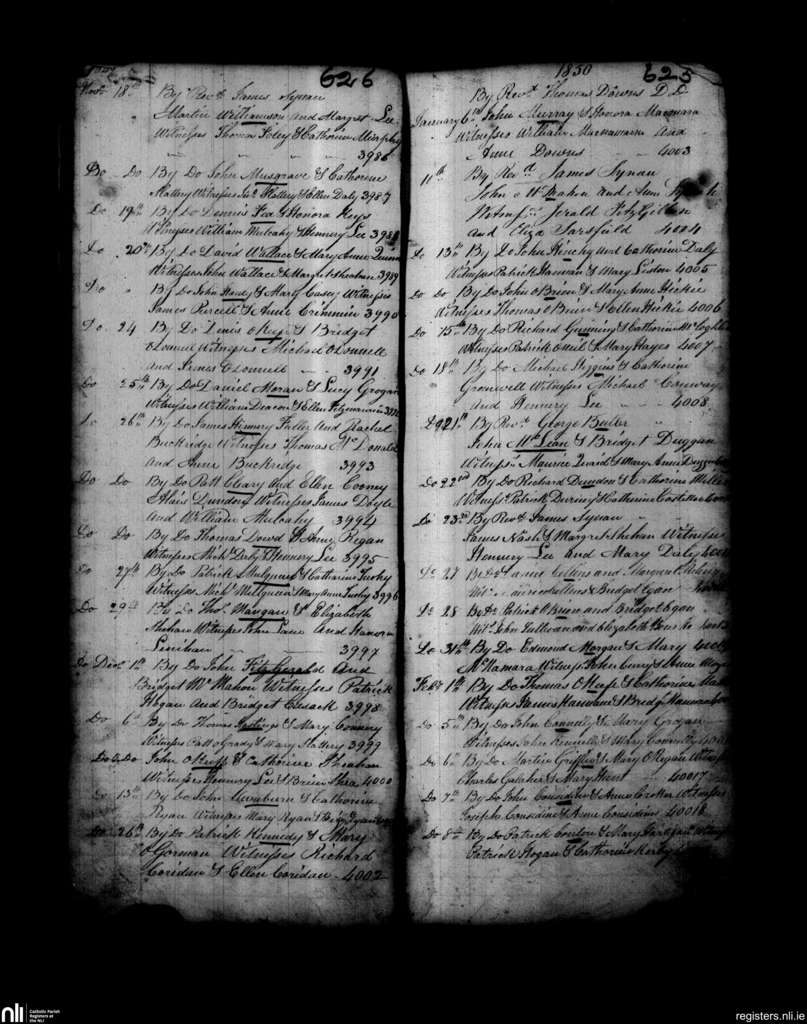 626
Novr 18th By Revd James Synan
Martin Williamson and Margret Lee
Witnesses Thomas Foley & Cathorin Murphy
3986
Do - Do By Do John Musgrave & Cathorine
Slattery Witnesses Jno Slattery & Ellen Daly 3987
Do 19th By Do Dennis Fea & Honora Keys
Witness William Mulcahy & Hennery Lee 3988
Do 20th By Do David Wallace & Mary Anne Quinn
Witnesses John Wallace & Margret Sheahan 3989
Do " By Do John Handy & Mary Casey Witnesses
James Purcell & Anne Crimmin 3990
Do 24 By Do Denis OKeefe & Bridget
OConnell Witnesses Michael OConnell
and OConnell 3991
Do 25th By Do Daniel Moran & Lucy Grogan
Witnesses William Deacon & Ellen Fitzmaurice
Do 26th By Do James Hennery Fuller and Rachel
Buckridge Witnesses Thomas McDonald
and Anne Buckridge 3993
Do Do By Do Patt Cleary and Ellen Cooney
Alias Dundon Witnesses James Doyle
and William Mulcahy 3994
Do Do By Do Thomas Dowd & Amy Regan
Witnesses Michl Daly & Hennery Lee 3995
Do 27th By Do Patrick Mulqueen & Catharine Tuohy
Witness Michl Mulqueen & Mary Anne Tuohy 3996
Do 29th By Do Thos Mangan & Elizabeth
Sheehan Witnesses John Lane and Hanora
Linihan 3997
Do Decr 1st By Do John FitzGerald And
Bridget McMahon Witnesses Patrick
Hogan And Bridget Cusack 3998
Do 6th By Do Thomas & Mary Connery
Witness Patt oGrady & Mary Slattery 3999
Do & Do John OKeeffe & Cathorine Sheahan
Witnesses Hennery Lee & Brien Shea 4000
Do 13th By Do John & Cathorine
Ryan Witnesses Mary Ryan &
Do 26th By Do Patrick Kennedy & Mary
OGorman Witnesses Richard
Coridan & Ellen Coridan - 4002
1850 625
By Revd Thomas Downs D.D
January 6th John Murray & Honora Macnmara
Witnesses William Macnamara And
Anne Downs 4003
11th By Revd James Synan
John McMahon and Ann
Witnesses Jerald FitzGibbon
and Eliza Sarsfield 4004
Do 13th By Do John Hinchy and Cathorine Daly
Witnesses Patrick Hannan & Mary Liston 4005
Do Do By Do John OBrien & Mary Anne Hickie
Witnesses Thomas OBrien & Ellen Hickie 4006
Do 15th By Do Richard Gunning & Cathorine
Witnesses Patrick ONeil & Mary Hayes 4007
Do 18th By Do Michael Higgins & Cathorine
Gronwell Witnesses Michael Conway
and Hennery Lee 4008
Do 21st By Revd George Butler
John McLean & Bridget Duggan
Witnesses Maurice Quaid & Mary Anne Duggan
Do 22nd By Do Richard Dundon & Cathorine
Witness Patrick Durney & Catherine Costillo
Do 23rd By Revd James Synan
James Nash & Margret Shehan Witnesses
Hennery Lee and Mary Daly
Do 27 By Do James Collins and Margaret
Wits Collins & Bridget Egan
Do 28 By Do Patrick OBrien and Bridget Egan
Wits John Sullivan and Elizabeth
Do 31st By Do Edmund Morgan & Mary
McNamara Witness John Curry & Anne
Feby 1st By Do Thomas OKeefe & Cathorine
Witnesses James Hannan & Bridget Hannan
Do 5th By Do John Connelly & Mary Grogan
Witnesses John Kennelly & Mary Connelly
Do 6th By Do Martin Griffin & Mary O Regan Witness
Charles Galaher & Mary Hunt 4017
Do 7th By Do John Considine & Anne Crotter Witnesses
Joseph Considine & Anne Considine 4018
Do 8th By Do Patrick Conlon & Mary
Patrick Hogan & Cathorine Kerby
nli
Catholic Parish
Registers at
the NLI
registers.nli.ie